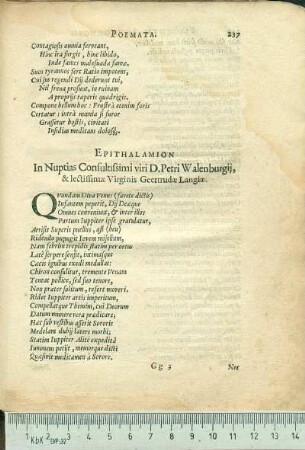 POEMATA. 237
Contagiosis omnia fervent,
Hinc ira surgit, hinc libido,
Inde fames malesuada fama.
Suos tyrannos fert Ratio impotens,
Cui jus regendi Dij dederant tui,
Nil frena prosunt, in ruinam
A proprijs raperis quadrigis.
Compone bellum hoc: Frustrà etenim foris
Certatur; intrà mœnia si furor
Grassetur hostis, civitati
Insidias meditans dolosas.
EPITHALAMION
In Nuptias Consultissimi viri D. Petri Walenburgij,
& lectissimæ Virginis Gertrudæ Langiæ.
Quandam Diva Venus (favete dictis)
Infantem peperit, Dij Deæque
Omnes conveniunt, & inter illos
Partum Juppiter ipse gratulatur,
Arrisit Superis puellus, ast (heu)
Ridendo pupugit Jovem misellum,
Nam febris trepidis statim per artus
Latè serpere sensit, intimusque
Cæcis ignibus exedi medullas:
Chiron consulitur, trementi venam
Tentat pollice, sed tuo tenore,
Non præter solitum, refert moveri.
Ridet Juppiter artis imperitum,
Compellatque Themin, cui Deorum
Datum munere vera prædicare,
Hac sub vestibus asserit Sororis
Medelam dubij latere morbi;
Statim Juppiter Alitè expedità
Junonem petijt, memorque dicti
Quæsivit medicamen à Sorore.
Gg 3 Nec
1 2 3 4 5 6 7 8 9 10 11 12 13 14